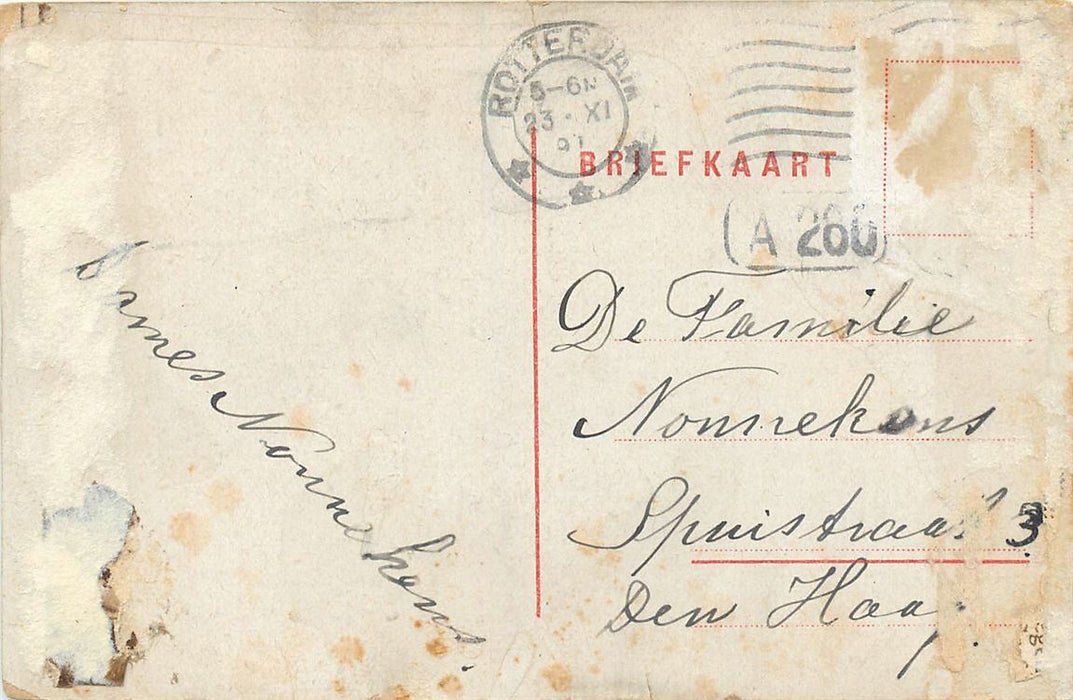 ROTTERDAM
5-6N
23 XI
BRIEFKAART
A 260
De Familie
Nonnekens
Spuistraat 3
Den Haag.
James Nonnekens.